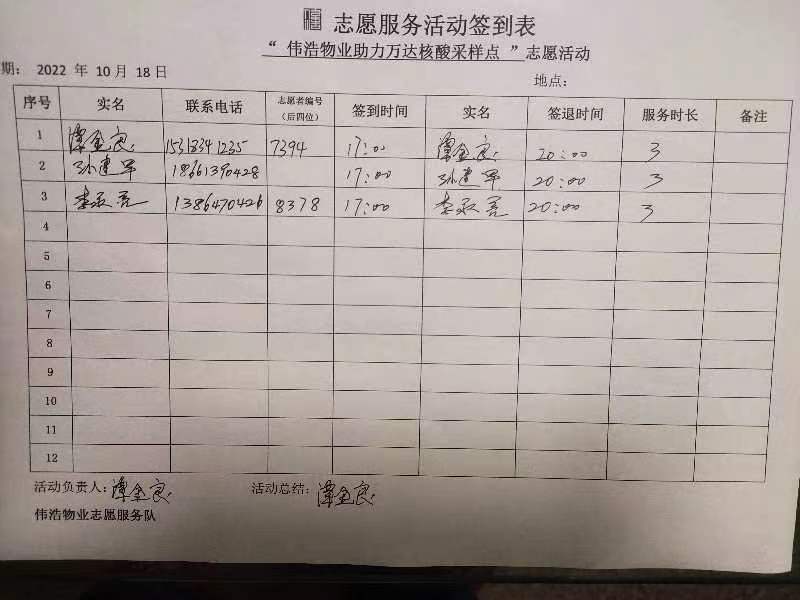 志愿服务活动签到表
“ 伟浩物业助力万达核酸采样点 ”志愿活动
期： 2022 年 10 月 18 日 地点：
序号 实名 联系电话 志愿者编号（后四位） 签到时间 实名 签退时间 服务时长 备注
1 谭金良 15318341235 7394 17:00 谭金良 20:00 3
2 孙建军 18661390428 17:00 孙建军 20:00 3
3 李 1386470426 8378 17:00 李 20:00 3
4
5
6
7
8
9
10
11
12
活动负责人：谭金良 活动总结：谭金良
伟浩物业志愿服务队